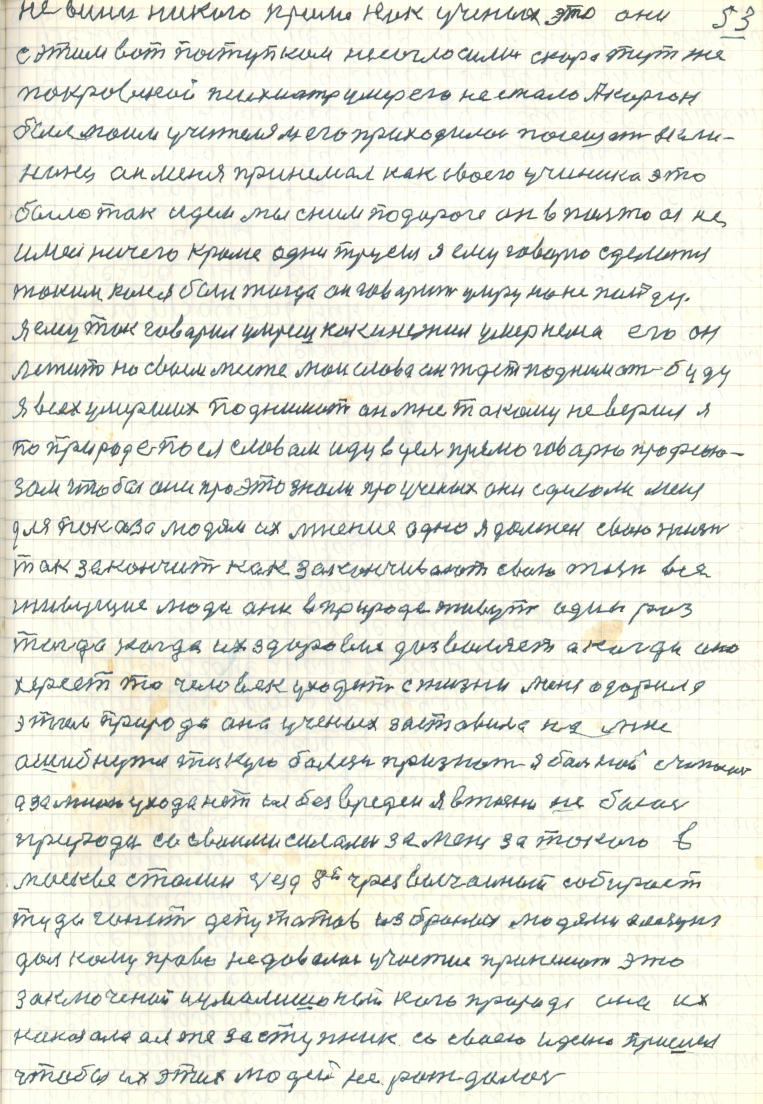 не вини никого кроме как ученых это они 53
с этим вот поступком несогласили скора тут же
покровской психиатр умер его нестало А Корган
был моим учителям его приходилос посещат
он меня принемал как своего ученика это
было так идем мы сним подороге он в политого не
имел ничего кроме одни трусы я ему говорю зделатя
таким как я был тогда он говарит умру но не пойду.
Я ему так говарил умреш как и не жил умер нема его он
лежит на своем месте мои слова он ждет поднимат буду
я всех умерших поднимат он мне такому неверил я
по природе после словам иду в цех прямо говарю профсою-
зам чтобы они про это знали про ученых они зделали меня
для показа людям их мнение одно я должен свою жизн
так закончит как заканчивают свою жизн все
живущие люди они в природе живут один раз
тогда когда их здоровие дазваляет а когда оно
херсет то человек уходить с жизни меня одарила
этим природа она ученых заставила на мне
ошибнутся такую болезн признат я болной считаюс
а за мною ухода нет я безвреден я в жизни не боюс
природа со своими силами за меня за такого в
москве сталин зезд 8й чрезвычайный собирает
туда гонет депутатов избраных людями
дал кому право недавалос участие принемат это
заключеной и умалишоный кого природа она их
наказала я же заступник со своею идеею пришел
чтобы их этих людей не рождалос